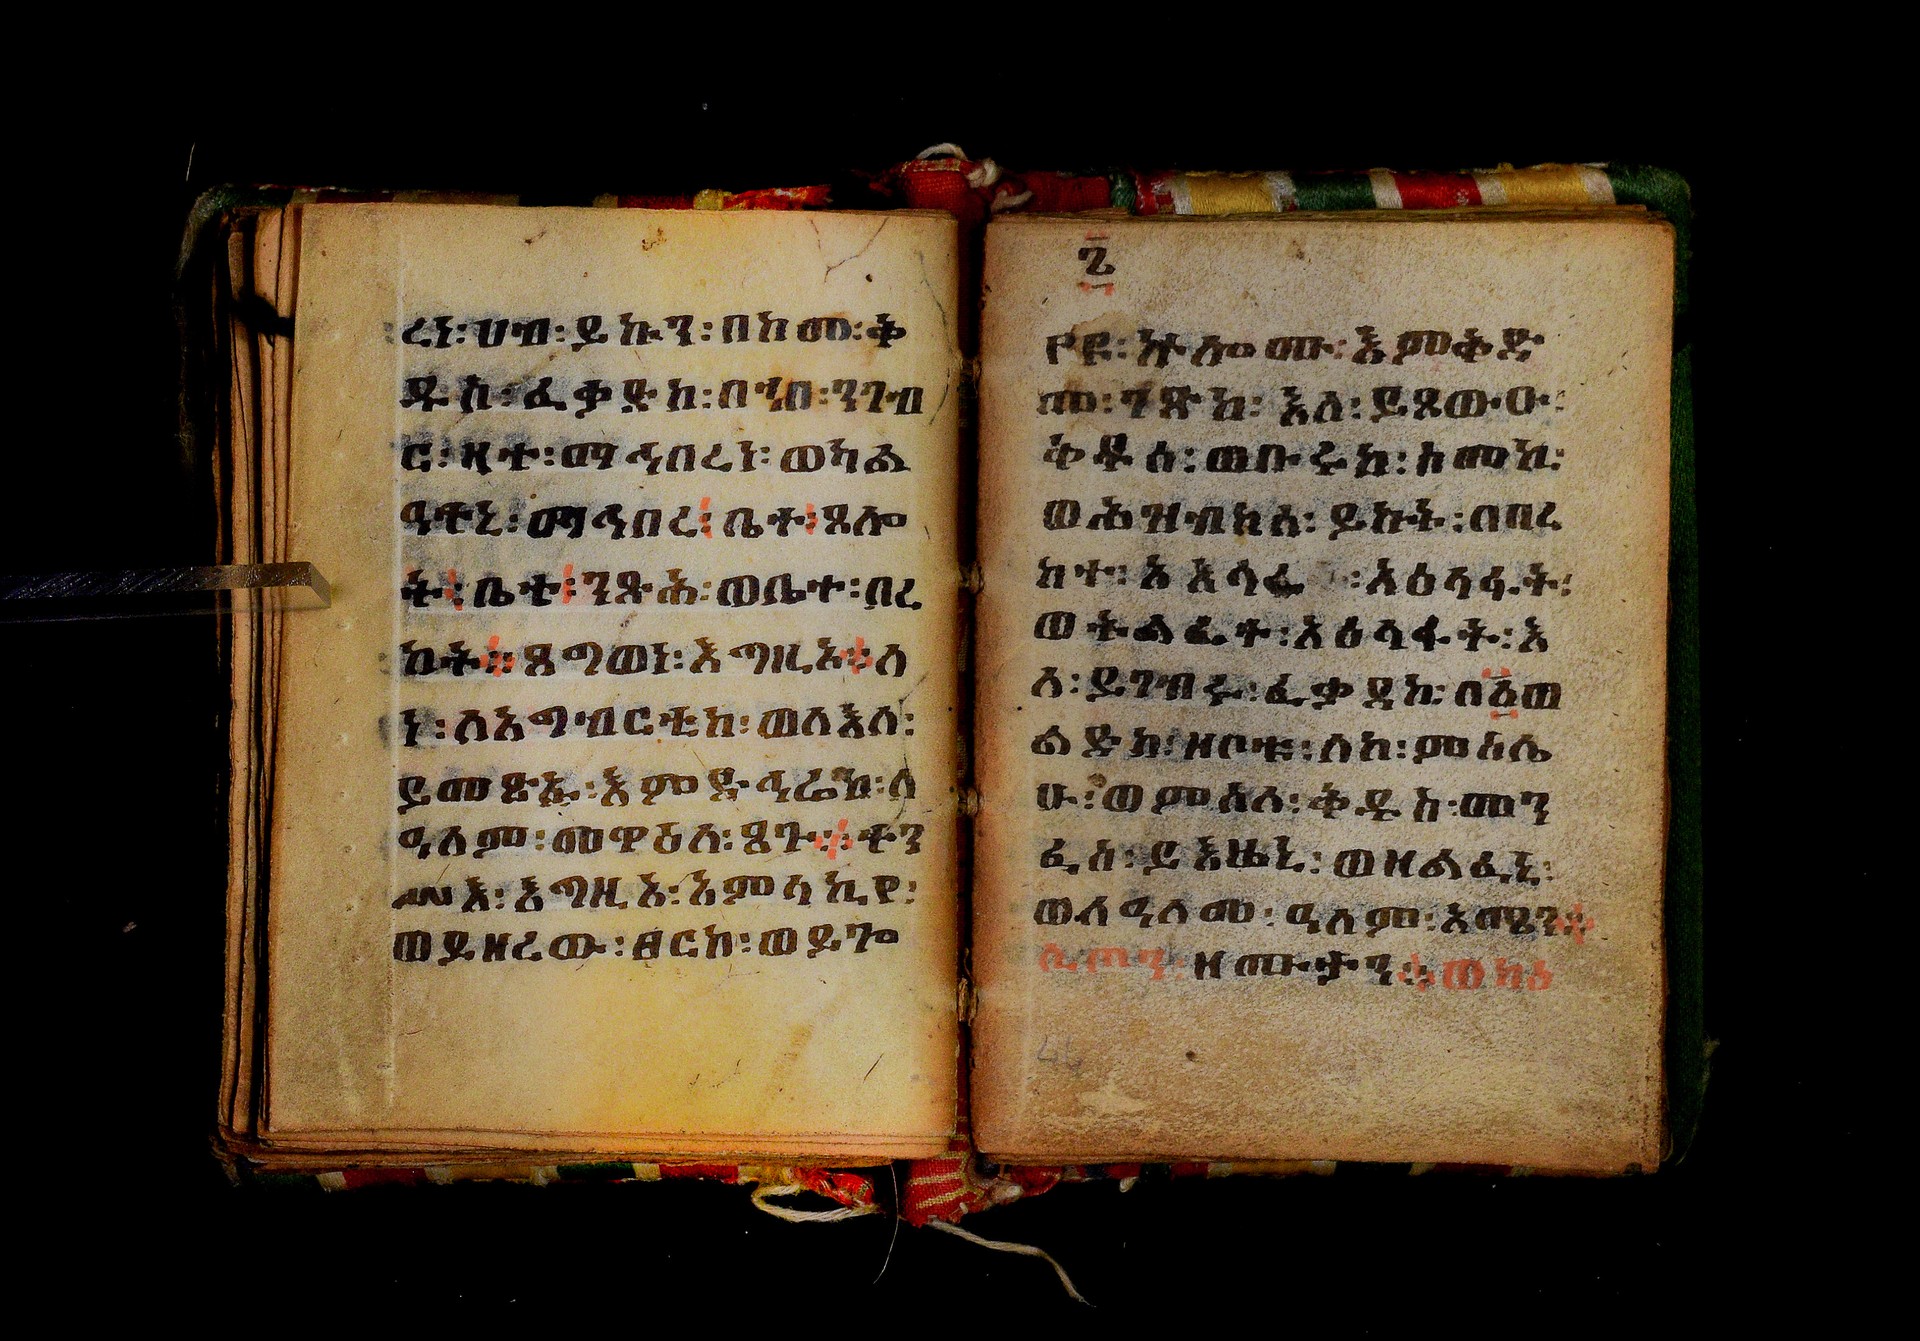 ረነ፡ ሀብ፡ ይኩን፡ በከመ፡ ቅ
ዱስ፡ ፈቃድከ፡ በኀበ፡ ንገብ
ር፡ ዛተ፡ ማኅበረነ፡ ወካል
ዓተኒ፡ ማኅበረ፡ ቤተ፡ ጸሎ
ት፡ ቤተ፡ ንጽሕ፡ ወቤተ፡ በረ
ከት፨ ጸግወነ፡ እግዚኦ፨ ለ
ነ፡ ለአግብርቲከ፡ ወለእለ፡
ይመጽኡ፡ እምድኅሬነ፡ ለ
ዓለም፡ መዋዕለ፡ ጸጉ፨ ተን
ሥእ፡ እግዚእ፡ አምላኪየ፡
ወይዘረው፡ ፀርከ፡ ወይጐ
፯
የዩ፡ ኵሎሙ፡ እምቅድ
መ፡ ገጽከ፡ እለ፡ ይጸውዑ፡
ቅዱስ፡ ወቡሩክ፡ ስመከ፡
ወሕዝብከሰ፡ ይኩን፡ በበረ
ከተ፡ አአላፈ፡ አዕላፋት፡
ወትልፊተ፡ አዕላፋት፡ እ
ለ፡ ይገብሩ፡ ፈቃደከ፡ በ፩ወ
ልድከ፡ ዘቦቱ፡ ለከ፡ ምስሌ
ሁ፡ ወምስለ፡ ቅዱስ፡ መን
ፈስ፡ ይእዜኒ፡ ወዘልፈኒ፡
ወለዓለመ፡ ዓለም፡ አሜን፨
ዘሙታን፨ ወካዕ